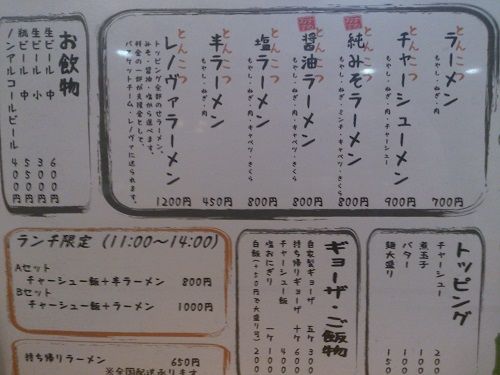 とんこつ
ラーメン
もやし・ねぎ・肉
700円
とんこつ
チャーシューメン
もやし・ねぎ・チャーシュー
900円
とんこつ
純みそラーメン
もやし・ねぎ・ミンチ・キャベツ・きくら
800円
とんこつ
醤油ラーメン
もやし・ねぎ・肉・キャベツ・きくら
800円
とんこつ
塩ラーメン
もやし・ねぎ・肉・キャベツ・きくら
800円
とんこつ
半ラーメン
もやし・ねぎ・肉
450円
とんこつ
レノヴァラーメン
トッピング全部のせラーメン。
みそ・醤油・塩から選べます。
料金の一部が支援金として、
バスケットチーム、レノヴァに送られます。
1200円
お飲物
生ビール 中 600円
生ビール 小 350円
瓶ビール 中 550円
ノンアルコールビール 400円
ランチ限定 (11:00~14:00)
Aセット
チャーシュー飯+半ラーメン 800円
Bセット
チャーシュー飯+ラーメン 1000円
持ち帰りラーメン 650円
※全国配送承ります
ギョーザ・ご飯物
自家製ギョーザ 五ケ 300
持ち帰りギョーザ 十ケ 600
チャーシュー飯 400
塩おにぎり 一ケ 100
白飯(+50円で大盛り可) 200
トッピング
チャーシュー 200
煮玉子 100
バター 100
麺大盛り 150